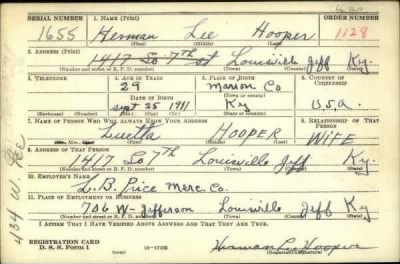 SERIAL NUMBER 1. NAME (Print) ORDER NUMBER
1655 Herman Lee Hooper 1128
(First) (Middle) (Last)
2. ADDRESS (Print)
1417 So 7th st Louisville Jeff Ky.
(Number and street or R. F. D. number) (Town) (County) (State)
3. TELEPHONE 4. AGE IN YEARS 5. PLACE OF BIRTH 6. COUNTRY OF CITIZENSHIP
29 Marion Co
DATE OF BIRTH (Town or county)
Sept 25 1911 Ky U.S.a.
(Exchange) (Number) (Mo.) (Day) (Yr.) (State or country)
7. NAME OF PERSON WHO WILL ALWAYS KNOW YOUR ADDRESS 8. RELATIONSHIP OF THAT PERSON
HOOPER WIFE
(Mr., Mrs., Miss) (First) (Middle) (Last)
9. ADDRESS OF THAT PERSON
1417 So 7th Louisville Jeff Ky.
(Number and street or R. F. D. number) (Town) (County) (State)
10. EMPLOYER'S NAME
D. B. Price Merc. Co.
11. PLACE OF EMPLOYMENT OR BUSINESS
706 W- Jefferson Louisville Jeff Ky
(Number and street or R. F. D. number) (Town) (County) (State)
I AFFIRM THAT I HAVE VERIFIED ABOVE ANSWERS AND THAT THEY ARE TRUE.
REGISTRATION CARD
D. S. S. Form 1 (over) 16—17105 Herman Lee Hooper
(Registrant's signature)
434 W.